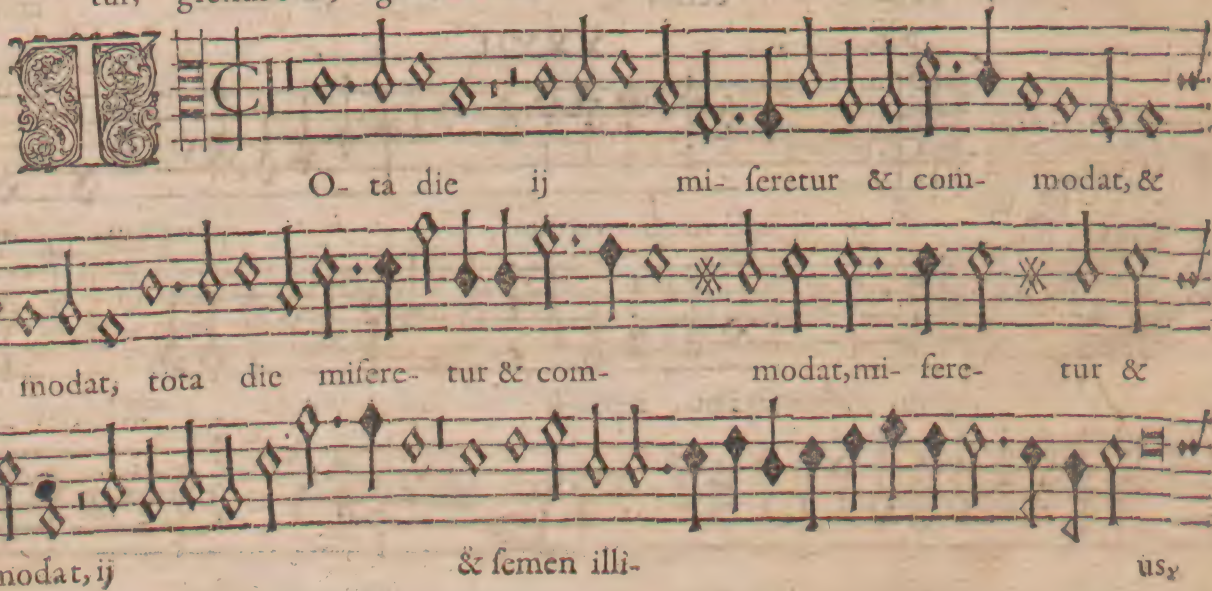 T
O- ta die ij mi- ſeretur & com- modat, &
modat, tota die miſere- tur & com- modat, mi- ſere- tur &
modat, ij & ſemen illi- us,